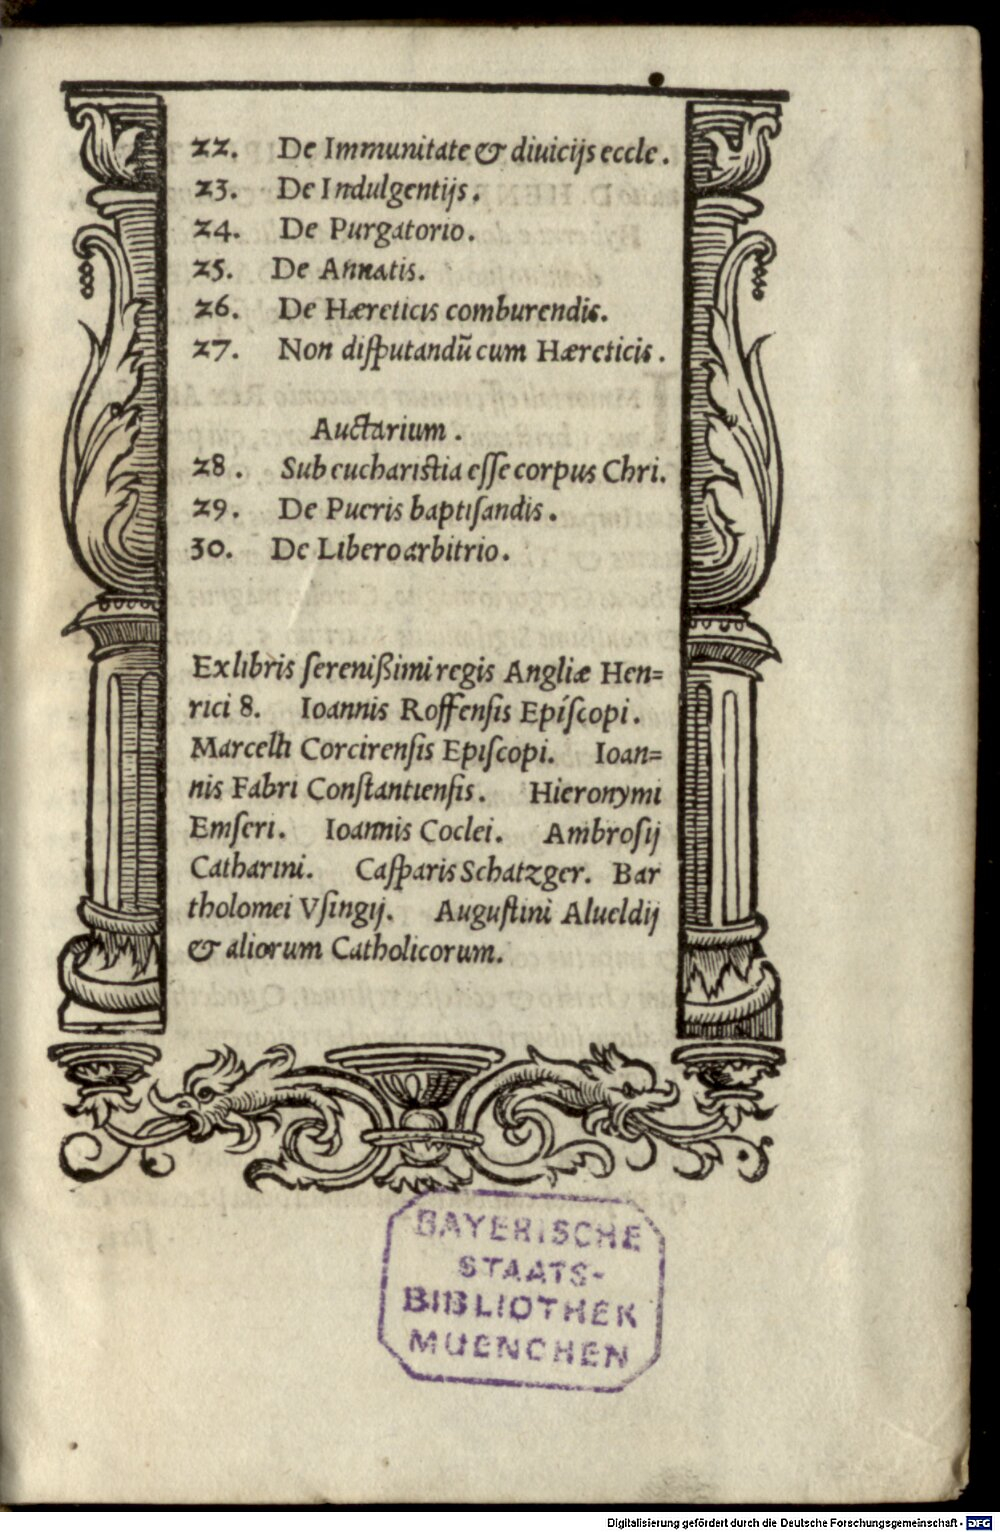 22. De Immunitate & diuicijs eccle.
23. De Indulgentijs.
24. De Purgatorio.
25. De Annatis.
26. De Hæreticis comburendis.
27. Non diſputandū cum Hæreticis.
Auctarium.
28. Sub euchariſtia eſſe corpus Chri.
29. De Pueris baptiſandis.
30. De Libero arbitrio.
Ex libris ſereniſsimi regis Angliæ Hen=
rici 8. Ioannis Roffenſis Epiſcopi.
Marcelli Corcirenſis Epiſcopi. Ioan=
nis Fabri Conſtantienſis. Hieronymi
Emſeri. Ioannis Coclei. Ambroſij
Catharini. Caſparis Schatzger. Bar
tholomei Vſingij. Auguſtini Alueldij
& aliorum Catholicorum.
BAYERISCHE
STAATS-
BIBLIOTHEK
MUENCHEN
Digitalisierung gefördert durch die Deutsche Forschungsgemeinschaft - DFG